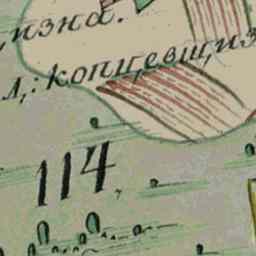 ,изна.
л,: копцевщиз
114,